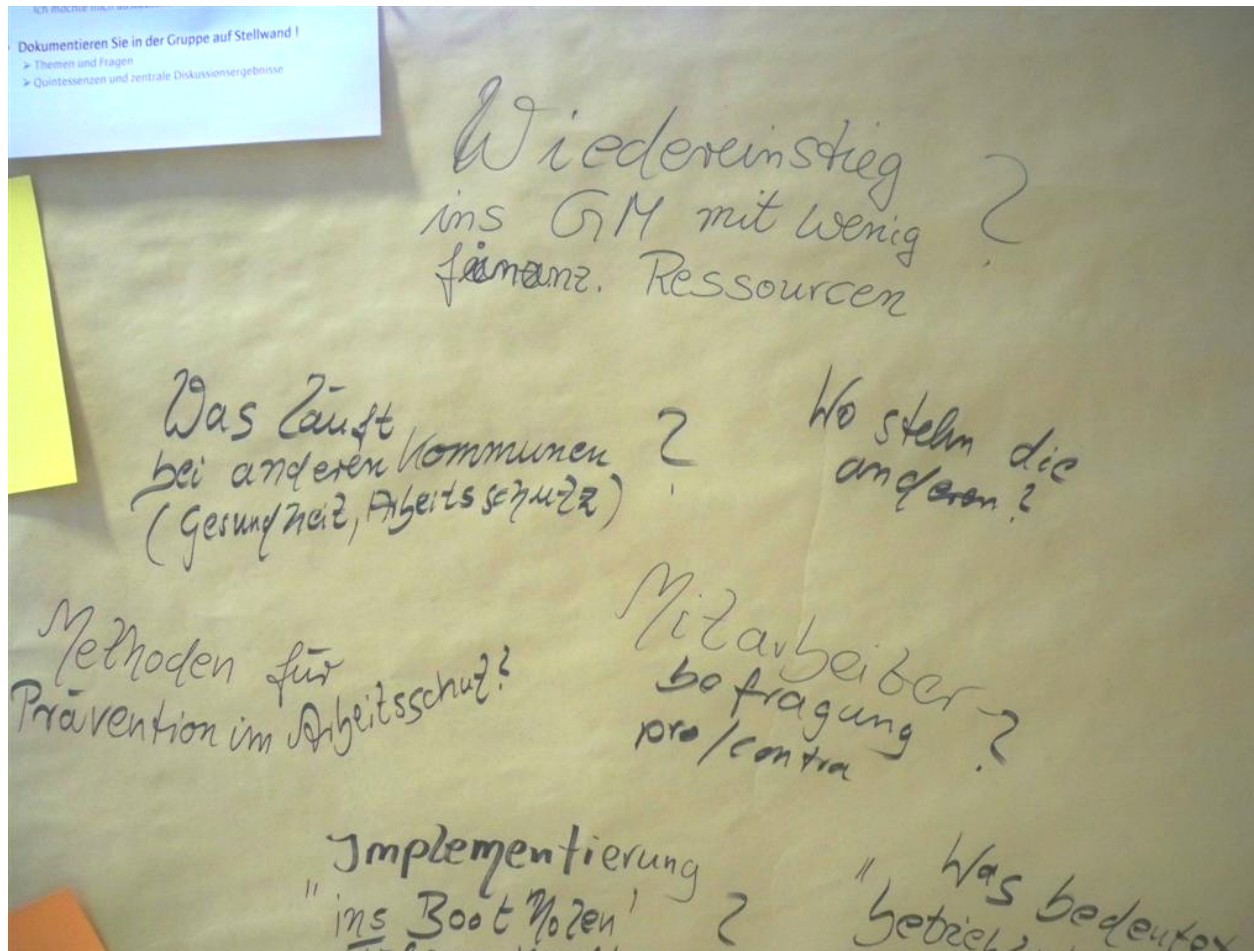 Ich möchte mich
Dokumentieren Sie in der Gruppe auf Stellwand !
➢ Themen und Fragen
➢ Quintessenzen und zentrale Diskussionsergebnisse
Wiedereinstieg
ins GM mit wenig ?
finanz. Ressourcen
Was läuft
bei anderen Kommunen ?
(Gesundheit, Arbeitsschutz)
Wo stehn die
anderen?
Methoden für
Prävention im Arbeitsschutz?
Mitarbeiter-
befragung
pro/contra ?
Implementierung
"ins Boot holen" ?
"Was bedeutet